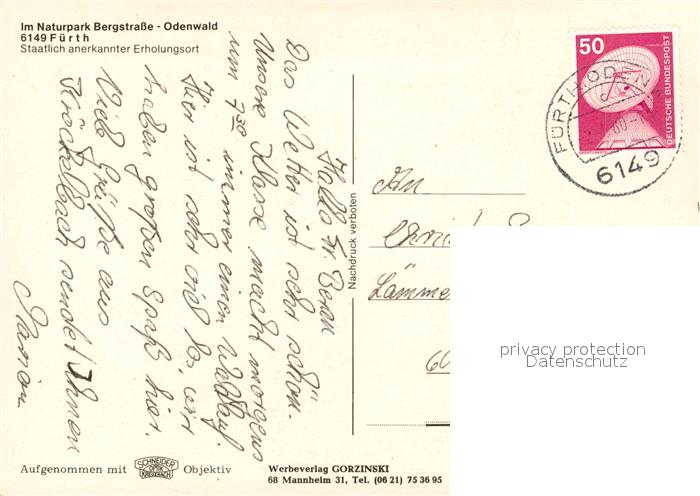 Im Naturpark Bergstraße - Odenwald
6149 Fürth
Staatlich anerkannter Erholungsort
Hallo Fr. Beran
Das Wetter ist sehr schön.
Unsere Klasse macht morgens
um 7.30 immer einen Waldlauf.
Hier ist sehr viel los, wir
haben großen Spaß hier.
Viele Grüße aus
Kröckelbach sendet Ihnen
Marion
Nachdruck verboten
50
DEUTSCHE BUNDESPOST
FÜRTH, OD
6149
An
Lämme
60
privacy protection
Datenschutz
Aufgenommen mit SCHNEIDER OPTIK KREUZNACH Objektiv
Werbeverlag GORZINSKI
68 Mannheim 31, Tel. (06 21) 75 36 95